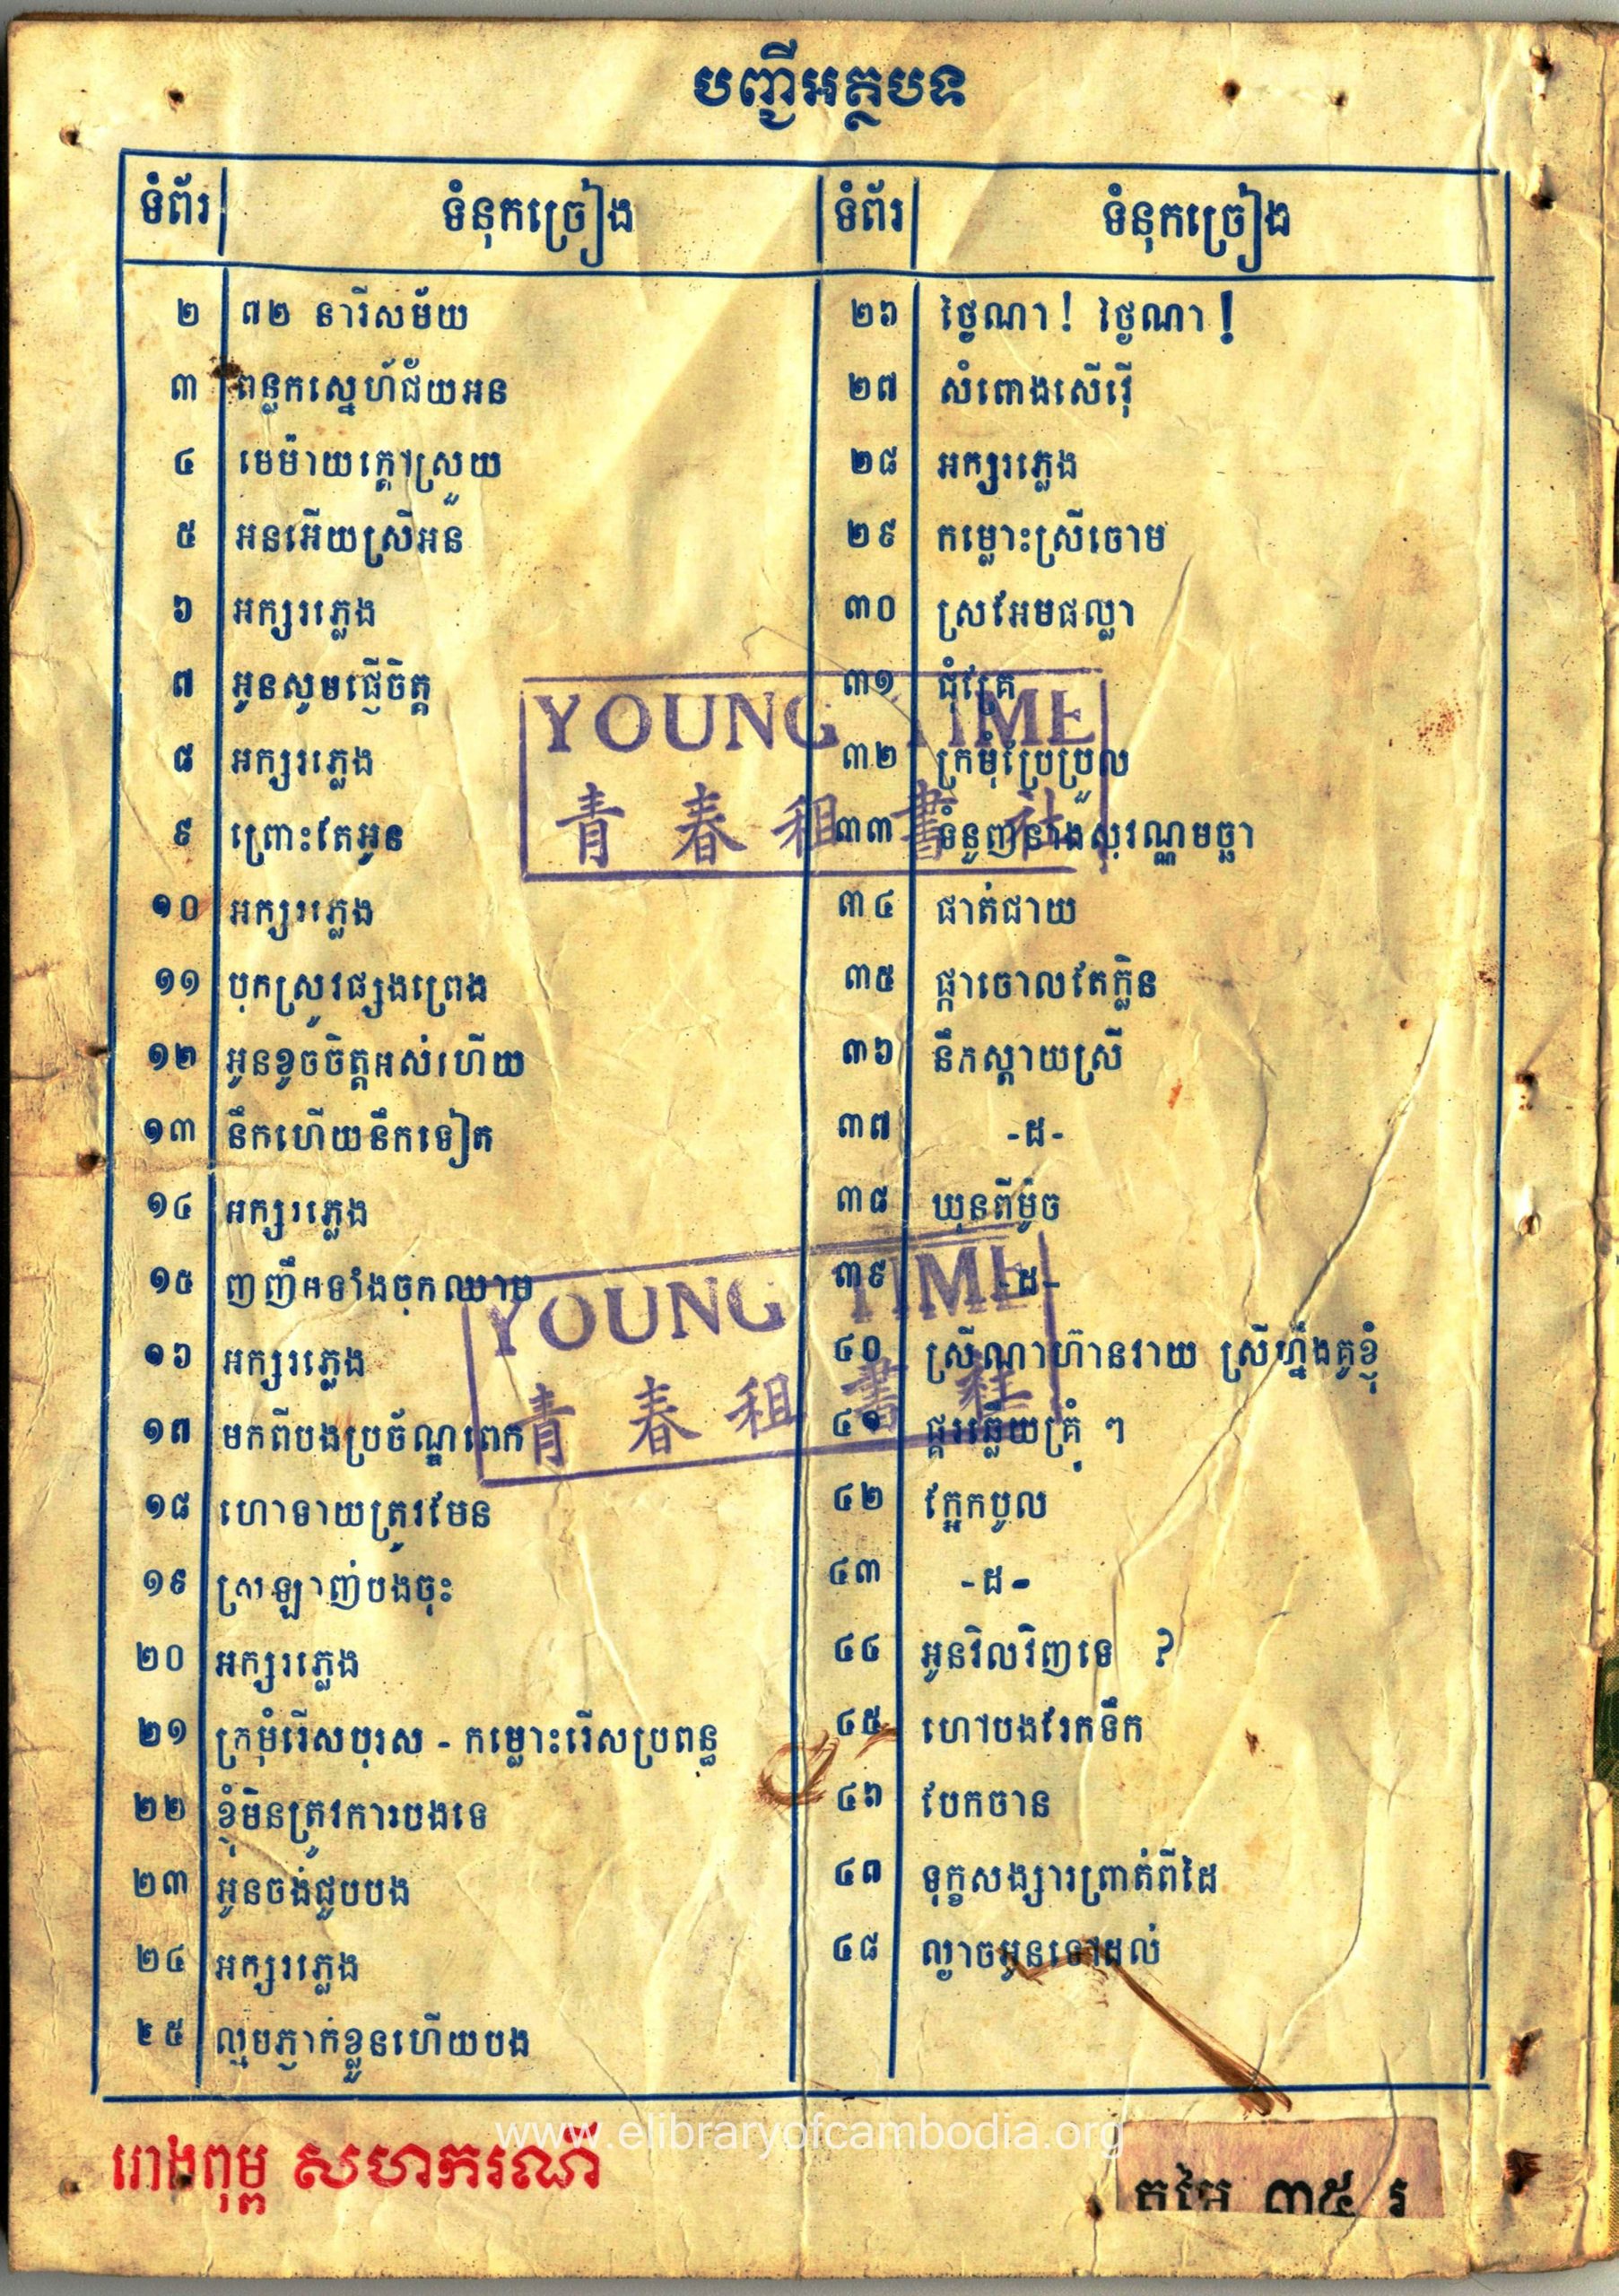 បញ្ជីអត្ថបទ
ទំព័រ ទំនុកច្រៀង
២ ៧២ នារីសម័យ
៣ ពន្លកស្នេហ៍ជ័យអន
៤ មេម៉ាយក្តៅស្រួយ
៥ អនអើយស្រីអន
៦ អក្សរភ្លេង
៧ អូនសូមផ្ញើចិត្ត
៨ អក្សរភ្លេង
៩ ព្រោះតែអូន
១០ អក្សរភ្លេង
១១ បុកស្រូវផ្សងព្រេង
១២ អូនខូចចិត្តអស់ហើយ
១៣ នឹកហើយនឹកទៀត
១៤ អក្សរភ្លេង
១៥ ញញឹមទាំងចុកឈាម
១៦ អក្សរភ្លេង
១៧ មកពីបងប្រច័ណ្ឌពេក
១៨ ហោទាយត្រូវមែន
១៩ ស្រឡាញ់បងចុះ
២០ អក្សរភ្លេង
២១ ក្រមុំរើសបុរស - កម្លោះរើសប្រពន្ធ
២២ ខ្ញុំមិនត្រូវការបងទេ
២៣ អូនចង់ជួបបង
២៤ អក្សរភ្លេង
២៥ ល្មមភ្ញាក់ខ្លួនហើយបង
ទំព័រ ទំនុកច្រៀង
២៦ ថ្ងៃណា! ថ្ងៃណា!
២៧ សំពោងសើវ៉ើ
២៨ អក្សរភ្លេង
២៩ កម្លោះស្រីចោម
៣០ ស្រអែមផល្លា
៣១ ជុំគ្រែ
៣២ ក្រមុំប្រែប្រួល
៣៣ ទំនួញនាងសុវណ្ណមច្ឆា
៣៤ ផាត់ជាយ
៣៥ ផ្កាចោលតែក្លិន
៣៦ នឹកស្តាយស្រី
៣៧ -ដ-
៣៨ ឃុនពីម៉ូច
៣៩ -ដ-
៤០ ស្រីណាហ៊ានវាយ ស្រីហ្នឹងគូខ្ញុំ
៤១ ផ្គរឆ្លើយគ្រុំ ៗ
៤២ ក្អែកបូល
៤៣ -ដ-
៤៤ អូនវិលវិញទេ ?
៤៥ ហៅបងរែកទឹក
៤៦ បែកចាន
៤៧ ទុក្ខសង្សារព្រាត់ពីដៃ
៤៨ ល្ងាចអូនទៅដល់
YOUNG TIME
青春租書社
YOUNG TIME
青春租書社
www.elibraryofcambodia.org
រោងពុម្ព សហករណ៍
តម្លៃ ៣៥ រ